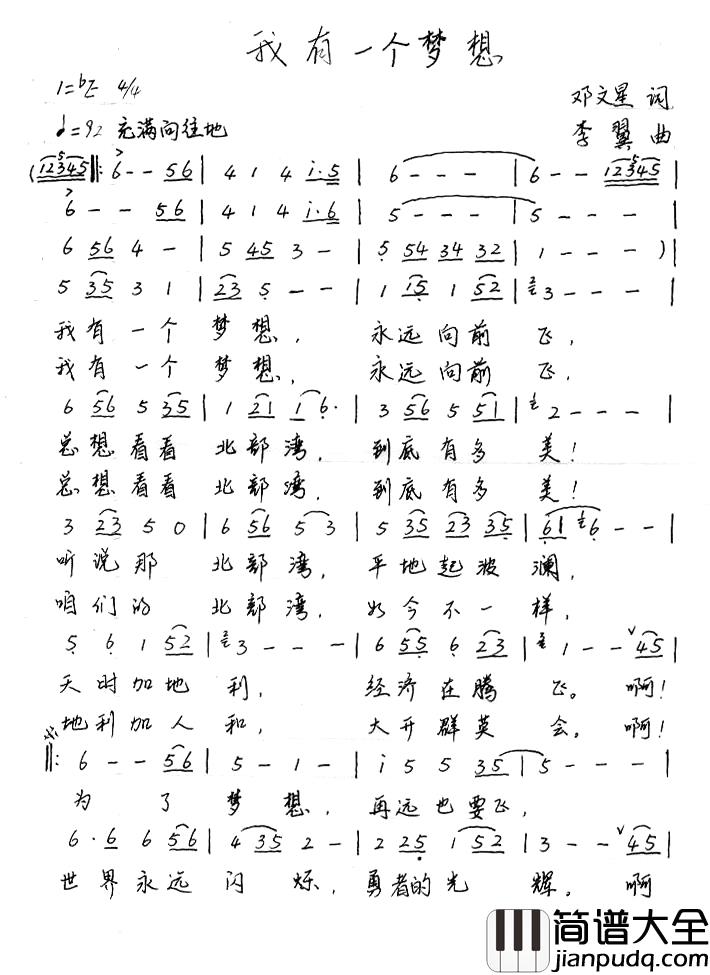 我有一个梦想
1=♭E 4/4
邓文星 词
♩=92 充满向往地
李翼 曲
(12345 ‖: 6 - - 56 | 4 1 4 i·5 | 6 - - - | 6 - - 12345 |
6 - - 56 | 4 1 4 i·6 | 5 - - - | 5 - - - |
6 56 4 - | 5 45 3 - | 5 54 34 32 | 1 - - - ) |
5 35 3 1 | 23 5 - - | 1 15 1 52 | 3 - - - |
我有一个 梦想, 永远向前 飞,
我有一个 梦想, 永远向前 飞,
6 56 5 35 | 1 21 1 6· | 3 56 5 51 | 2 - - - |
总想看看 北部湾, 到底有多 美!
总想看看 北部湾, 到底有多 美!
3 23 5 0 | 6 56 5 3 | 5 35 23 35 | 61 6 - - |
听说那 北部湾, 平地起波 澜,
咱们的 北部湾, 如今不一 样,
5 6 1 52 | 3 - - - | 6 55 6 23 | 1 - - ∨45 |
天时加地 利, 经济在腾 飞。 啊!
地利加人 和, 大开群英 会。 啊!
‖: 6 - - 56 | 5 - 1 - | i 5 5 35 | 5 - - - |
为 了 梦 想, 再远也要飞,
6·6 6 56 | 4 35 2 - | 2 25 1 52 | 3 - - ∨45 |
世界永远 闪 烁, 勇者的光 辉。 啊
简谱大全
jianpudq.com